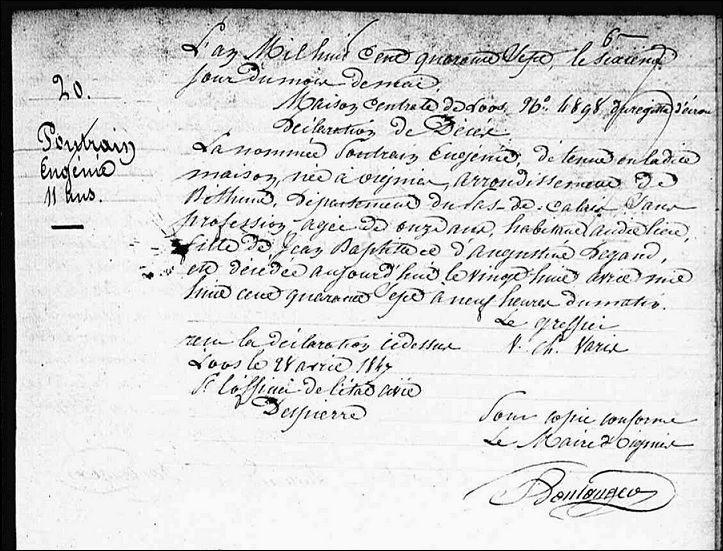 20.
Poutrain
Eugénie
11 ans.
6
L'an Mil huit Cent quarante Sept, le sixième
jour du mois de mai,
Maison Centrale de Loos N.o 4898 du registre d'écrou
Déclaration de Décès
La nommée Poutrain Eugénie, détenue en la dite
maison, née à Oignies, arrondissement de
Béthune, Département du Pas-de-Calais Sans
profession, agée de onze ans, habitant audit lieu,
fille de Jean Baptiste et d'Augustine Dezand,
est décédée aujourd'huit le vingt huit avril mil
huit cent quarante Sept à neuf heures du matin.
Le greffier
reçu la déclaration cidessus
Loos le 28 avril 1847
Pr l'officier de l'état civil
Despierre
Pour copie conforme
Le Maire d'Oignies